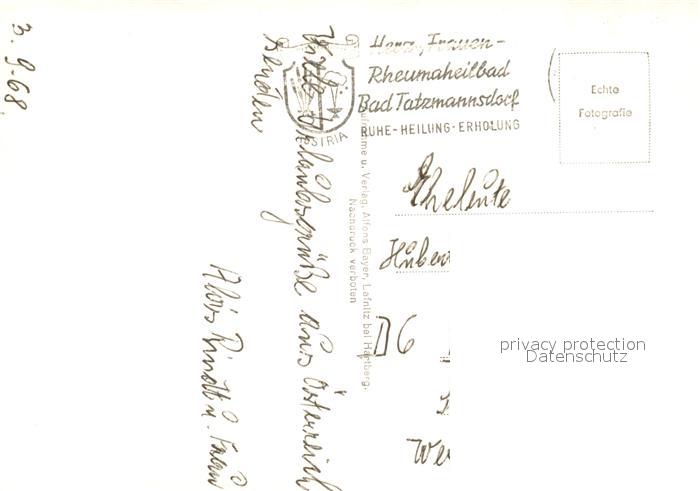 3. 9. 68
Viele Urlaubsgrüße aus Österreich
senden
Alois u. Frau
Herz-, Frauen-
Rheumaheilbad
Bad Tatzmannsdorf
RUHE-HEILUNG-ERHOLUNG
AUSTRIA
Aufnahme u. Verlag: Alfons Bayer, Lafnitz bei Hartberg.
Nachdruck verboten
Echte
Fotografie
Eheleute
Huber
D 6
We
privacy protection
Datenschutz